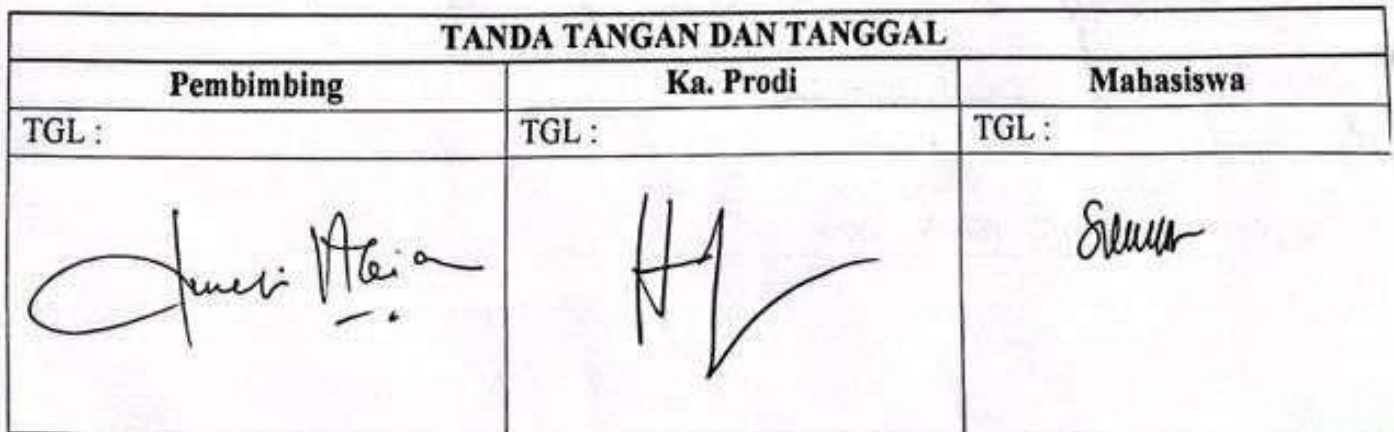 TANDA TANGAN DAN TANGGAL
Pembimbing Ka. Prodi Mahasiswa
TGL : TGL : TGL :